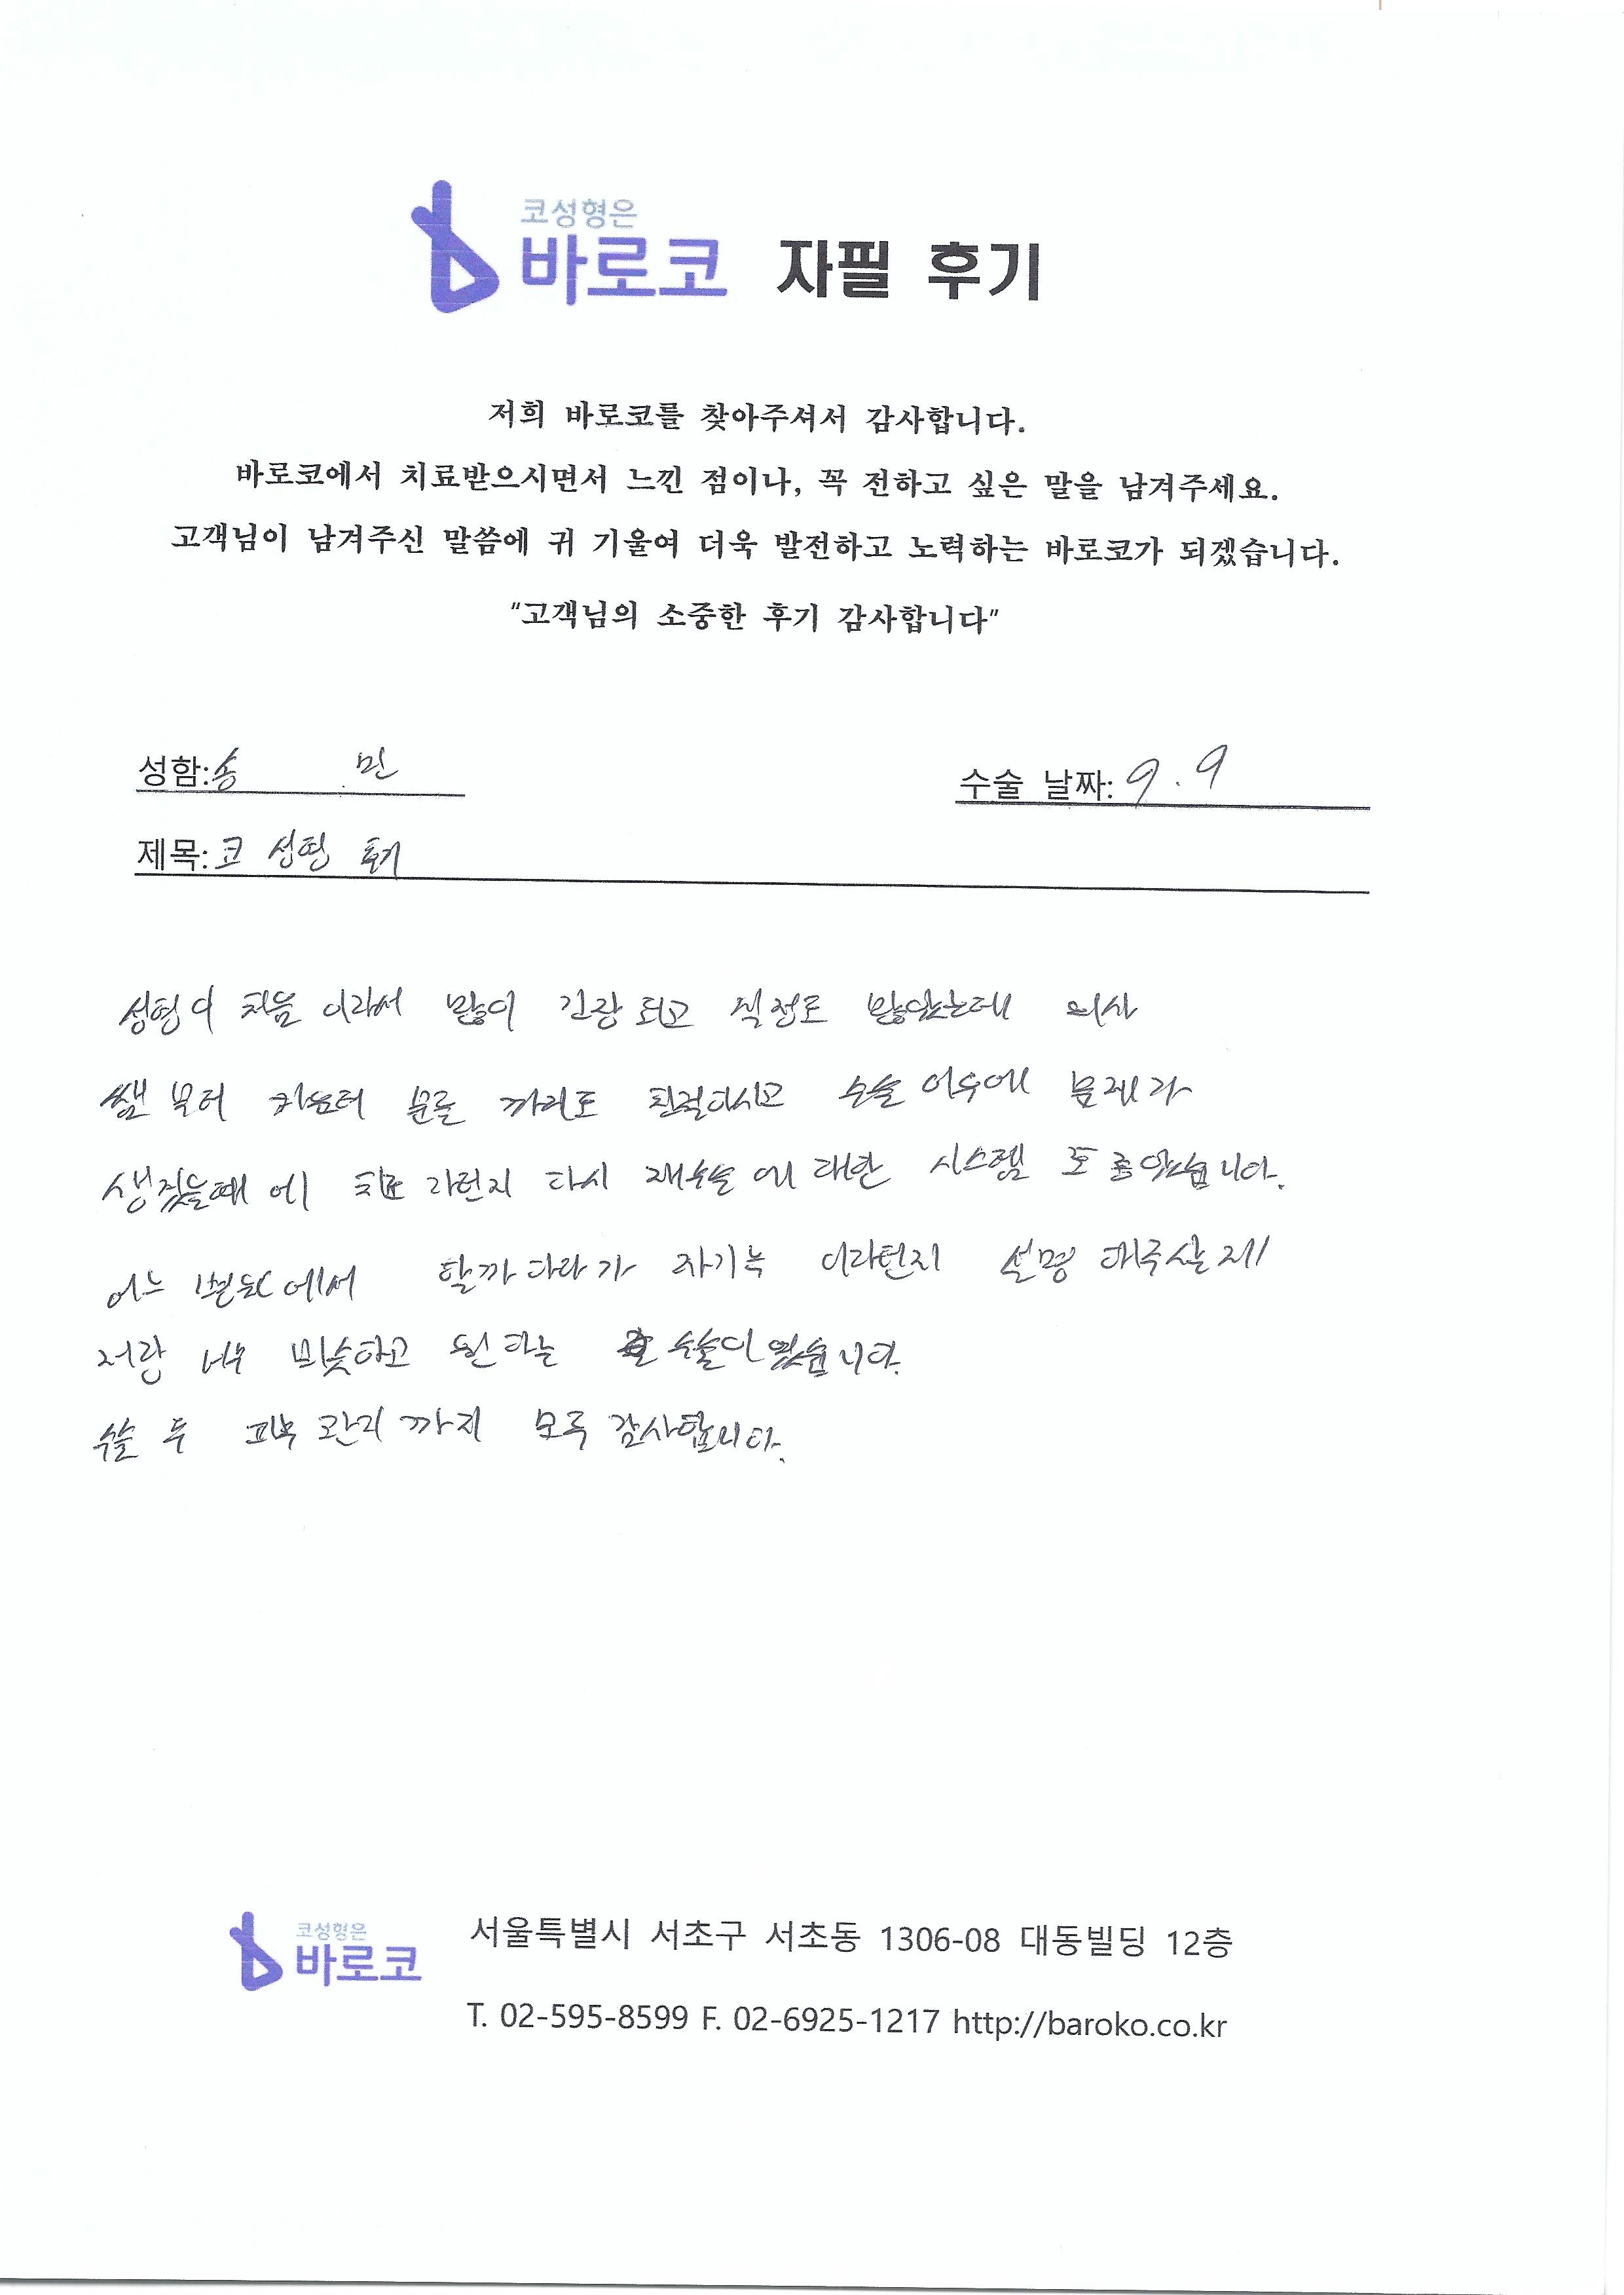 코성형은
바로코 자필 후기
저희 바로코를 찾아주셔서 감사합니다.
바로코에서 치료받으시면서 느낀 점이나, 꼭 전하고 싶은 말을 남겨주세요.
고객님이 남겨주신 말씀에 귀 기울여 더욱 발전하고 노력하는 바로코가 되겠습니다.
"고객님의 소중한 후기 감사합니다"
성함:송 민
수술 날짜: 9.9
제목: 코 성형 후기
성형이 처음 이라서 많이 긴장 되고 걱정도 많았는데 의사
쌤 부터 카운터 분들 까지도 친절하시고 수술 이후에 문제가
생겼을때 에 치료 라던지 다시 재수술 에 대한 시스템 도 좋았습니다.
어느 에서 할까 하다가 자기늑 이라던지 설명 해주신게
저랑 너무 비슷하고 원하는 수술이였습니다.
수술 후 관리 까지 모두 감사합니다.
코성형은
바로코
서울특별시 서초구 서초동 1306-08 대동빌딩 12층
T. 02-595-8599 F. 02-6925-1217 http://baroko.co.kr